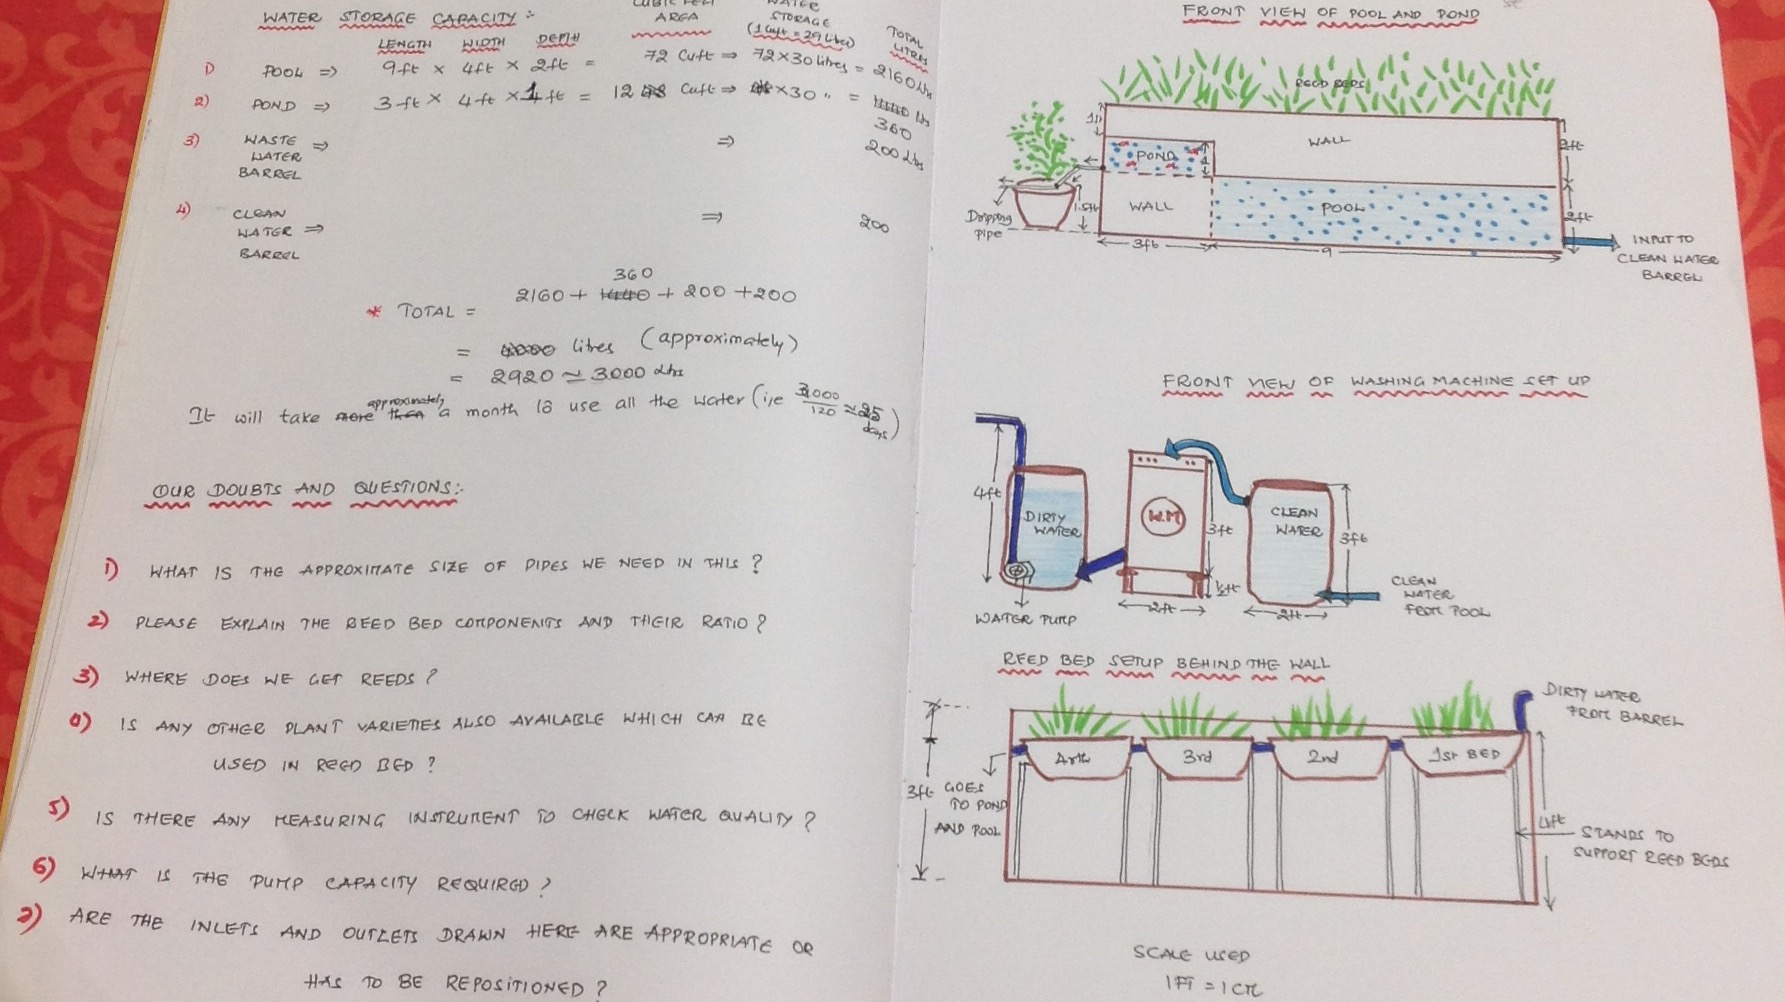 WATER STORAGE CAPACITY :-
AREA
STORAGE
(1 Cuft = 29 Liter)
TOTAL
LITRES
LENGTH WIDTH DEPTH
1) POOL ⇒ 9ft × 4ft × 2ft = 72 Cuft ⇒ 72×30 litres = 2160 Ltrs
2) POND ⇒ 3ft × 4ft × 1ft = 12 Cuft ⇒ ×30 " =
360
3) WASTE ⇒ ⇒ 200 Ltrs
WATER
BARREL
4) CLEAN ⇒ 200
WATER ⇒
BARREL
360
* TOTAL = 2160 + 1440 + 200 + 200
= litres (approximately)
= 2920 ≃ 3000 Ltrs
approximately
It will take more than a month to use all the water (i,e 3000/120 ≃ 25 days)
OUR DOUBTS AND QUESTIONS:-
1) WHAT IS THE APPROXIMATE SIZE OF PIPES WE NEED IN THIS ?
2) PLEASE EXPLAIN THE REED BED COMPONENTS AND THEIR RATIO ?
3) WHERE DOES WE GET REEDS ?
4) IS ANY OTHER PLANT VARIETIES ALSO AVAILABLE WHICH CAN BE
USED IN REED BED ?
5) IS THERE ANY MEASURING INSTRUMENT TO CHECK WATER QUALITY ?
6) WHAT IS THE PUMP CAPACITY REQUIRED ?
7) ARE THE INLETS AND OUTLETS DRAWN HERE ARE APPROPRIATE OR
HAS TO BE REPOSITIONED ?
FRONT VIEW OF POOL AND POND
REED BEDS
1ft
WALL
2ft
POND
1.5ft
WALL
POOL
2ft
Dripping
Pipe
3ft
9
INPUT TO
CLEAN WATER
BARREL
FRONT VIEW OF WASHING MACHINE SET UP
4ft
DIRTY
WATER
W.M
3ft
CLEAN
WATER
3ft
1/2ft
2ft
2ft
CLEAN
WATER
FROM POOL
WATER PUMP
REED BED SETUP BEHIND THE WALL
DIRTY WATER
FROM BARREL
4th
3rd
2nd
1st BED
3ft
GOES
TO POND
AND POOL
4ft
STANDS TO
SUPPORT REED BEDS
SCALE USED
1FT = 1CM